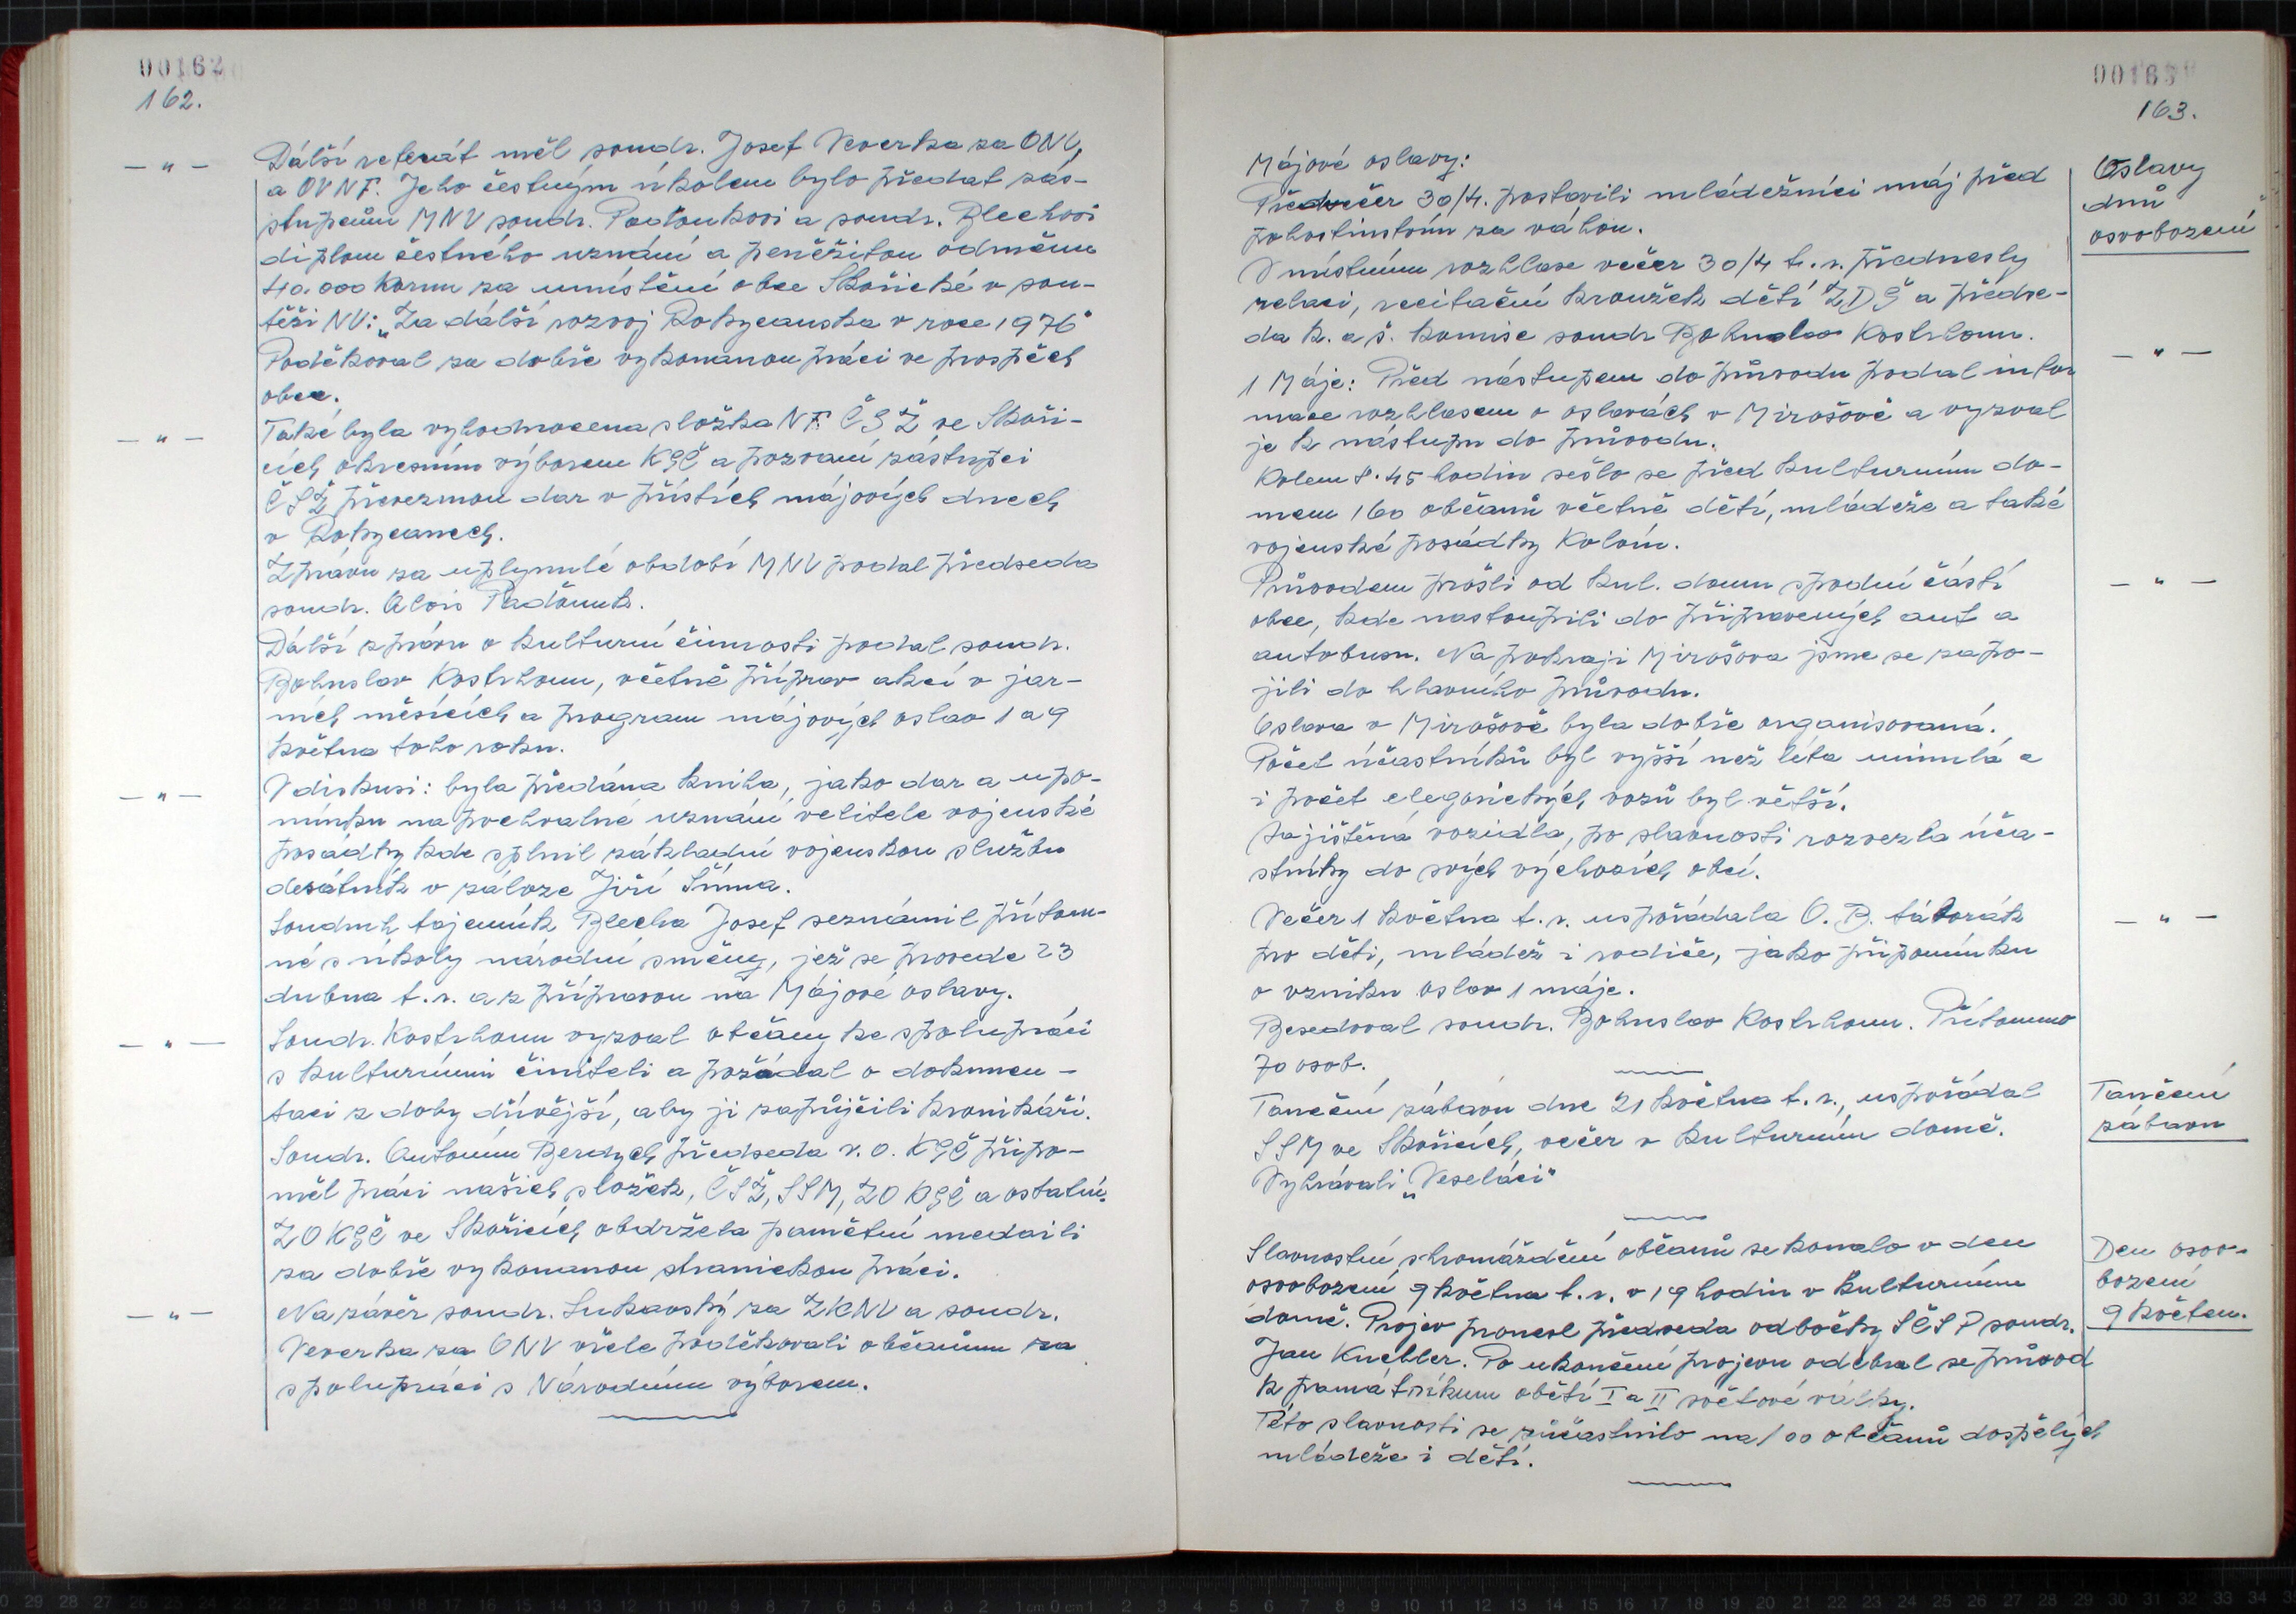 00162
162.
– „ –
Dálší referát měl soudr. Josef Veverka za ONV,
a OVNF. Jeho čestným úkolem bylo předat zás-
stupcům MNV soudr. a soudr. Blechovi
diplom čestného uznání a peněžitou odměnu
40.000 korun za umístění obce Skořické v sou-
těži NV: „Za dálší rozvoj Rokycanska v roce 1976"
Poděkoval za dobře vykonanou práci ve prospěch
obce.
– „ –
Také byla vyhodnocena složka NF. ČSŽ ve Skoři-
cích, okresním výborem KSČ a pozvaní zástupci
ČSŽ převezmou dar v příštích májových dnech
v Rokycanech.
Zprávu za uplynulé období MNV podal předseda
soudr. Alois
Dálší zprávu o kulturní činnosti podal soudr.
Bohuslav Kostrhoun, včetně příprav akcí v jar-
ních měsících a program májových oslav 1 a 9
května toho roku.
– „ –
V diskusi: byla předána kniha, jako dar a upo-
mínku na pochvalné uznání velitele vojenské
posádky kde splnil základní vojenskou službu
desátník v záloze Jiří Šíma.
Soudruh tajemník Blecha Josef seznámil přítom-
né s úkoly národní směny, jež se provede 23
dubna t.r. a s přípravou na Májové oslavy.
– „ –
Soudr. Kostrhoun vyzval občany ke spolupráci
s kulturními činiteli a požádal o dokumen-
taci z doby dřívější, aby ji zapůjčili kronikáři.
Soudr. Antonín Berdych předseda v.o. KSČ připo-
měl práci našich složek, ČSŽ, SSM, ZO KSČ a ostatní.
ZO KSČ ve Skořicích obdržela pamětní medaili
za dobře vykonanou stranickou práci.
– „ –
Na závěr soudr. Sukovský za ZKNV a soudr.
Veverka za ONV vřele poděkovali občanům za
spolupráci s Národním výborem.
00163
163.
Májové oslavy:
Oslavy
dnů
osvobození
Předvečer 30/4. postavili mládežníci máj před
pohostinstvím za váhou.
V místním rozhlase večer 30/4 t.r. přednesly
relaci, recitační kroužek dětí ZDŠ a předse-
da k. a š. komise soudr Bohuslav Kostrhoun.
– „ –
1 Máje: Před nástupem do průvodu podal infor
mace rozhlasem o oslavách v Mirošově a vyzval
je k nástupu do průvodu.
Kolem 8.45 hodin sešlo se před kulturním do-
mem 160 občanů včetně dětí, mládeže a také
vojenské posádky Kolvín.
– „ –
Průvodem prošli od kul. domu spodní částí
obce, kde nastoupili do připravených aut a
autobusu. Na pokraji Mirošova jsme se zapo-
jili do hlavního průvodu.
Oslava v Mirošově byla dobře organisovaná.
Počet účastníků byl vyšší než léta minulá a
i počet elegorických vozů byl větší.
Zajištěná vozidla, po slavnosti rozvezla úča-
stníky do svých výchozích obcí.
– „ –
Večer 1 května t.r. uspořádala O.B. táborák
pro děti, mládež i rodiče, jako připomínku
o vzniku oslav 1 máje.
Besedoval soudr. Bohuslav Kostrhoun. Přítomno
70 osob.
Taneční
zábavu
Taneční zábavu dne 21 května t.r., uspořádal
SSM ve Skořicích, večer v kulturním domě.
Vyhrávali „Veseláci"
Den osvo-
bození
9 květen.
Slavnostní shromáždění občanů se konalo v den
osvobození 9 května t.r. v 19 hodin v kulturním
domě. Projev pronesl předseda odbočky SČSP soudr.
Jan Knebler. Po ukončení projevu odebral se průvod
k památníkum obětí I a II světové války.
Této slavnosti se zúčastnilo na 100 občanů dospělých
mládeže i dětí.